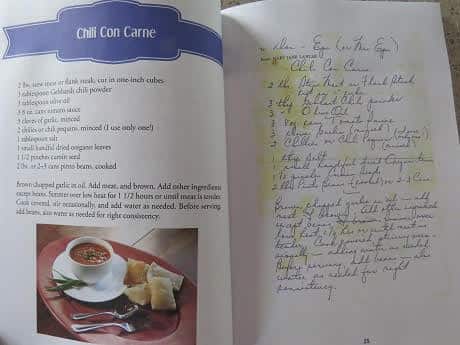 Chili Con Carne
2 lbs. stew meat or flank steak, cut in one-inch cubes
3 tablespoons Gebhardt chili powder
3 tablespoons olive oil
3 8 oz. cans tomato sauce
3 cloves of garlic, minced
2 chilies or chili pequins, minced (I use only one!)
1 tablespoon salt
1 small handful dried oregano leaves
1 1/2 pinches cumin seed
2 lbs. or 2-3 cans pinto beans, cooked
Brown chopped garlic in oil. Add meat, and brown. Add other ingredients
except beans. Simmer over low heat for 1 1/2 hours or until meat is tender.
Cook covered, stir occasionally, and add water as needed. Before serving
add beans, also water as needed for right consistency.
Chili Con Carne
2 lbs. Stew Meat or Flank Steak
3 tbs Gebhardt Chili powder
3 Olive Oil
3 tomato sauce
3 cloves Garlic (minced)
2 Chilies or Chili
(minced)
1 tbsp Salt
1 small handful
2 lbs Pinto Beans (cooked) or 2-3 Cans
Brown chopped garlic in oil - add
meat & brown. Add other
except beans. Simmer over
low heat 1 1/2 hrs or until meat is
tender. Cook covered, stir
adding water as needed.
Before serving add beans - also
water as needed for right
consistency.
25